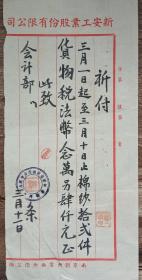 新安工業股份有限公司
祈付
三月一日起至三月十日止棉紗拾貳件
貨物稅法幣念萬另肆仟元正
此致
會計部
條
月十一日